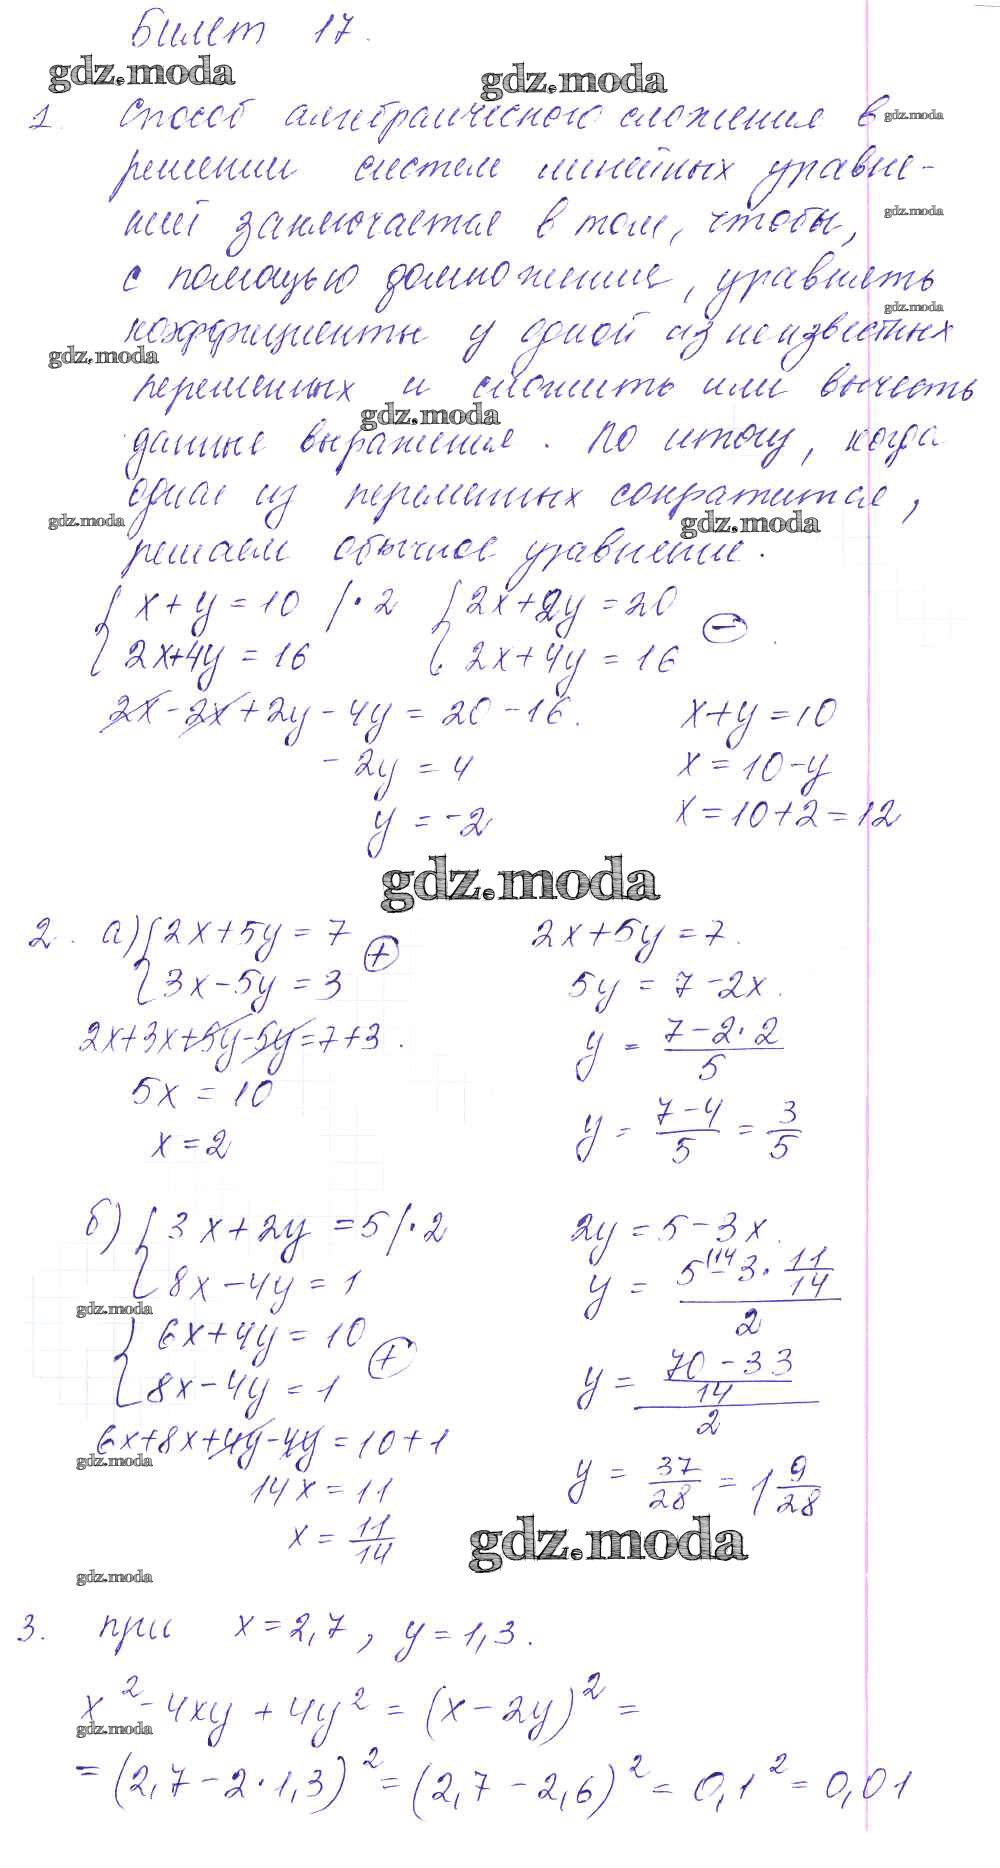 Билет 17.
gdz.moda
gdz.moda
1. Способ алгебраического сложения в
gdz.moda
решении систем линейных уравне-
ний заключается в том, чтобы,
gdz.moda
с помощью домножения, уравнять
gdz.moda
коэффициенты у одной из неизвестных
gdz.moda
переменных и сложить или вычесть
gdz.moda
данные выражения. По итогу, когда
одна из переменных сократится,
gdz.moda
gdz.moda
решаем обычное уравнение.
{ x + y = 10 | · 2 { 2x + 2y = 20
{ 2x + 4y = 16 { 2x + 4y = 16 (−)
2x − 2x + 2y − 4y = 20 − 16. x + y = 10
− 2y = 4 x = 10 − y
y = −2 x = 10 + 2 = 12
gdz.moda
2. а) { 2x + 5y = 7 (+) 2x + 5y = 7.
{ 3x − 5y = 3 5y = 7 − 2x.
2x + 3x + 5y − 5y = 7 + 3. y = (7 − 2 · 2)/5
5x = 10
x = 2 y = (7 − 4)/5 = 3/5
б) { 3x + 2y = 5 | · 2 2y = 5 − 3x.
{ 8x − 4y = 1 y = (5^(14 − 3 · 11/14)/2
gdz.moda
{ 6x + 4y = 10 (+)
{ 8x − 4y = 1 y = ((70 − 33)/14)/2
6x + 8x + 4y − 4y = 10 + 1
gdz.moda
14x = 11 y = 37/28 = 1 9/28
x = 11/14
gdz.moda
gdz.moda
3. при x = 2,7, y = 1,3.
x² − 4xy + 4y² = (x − 2y)² =
gdz.moda
= (2,7 − 2 · 1,3)² = (2,7 − 2,6)² = 0,1² = 0,01